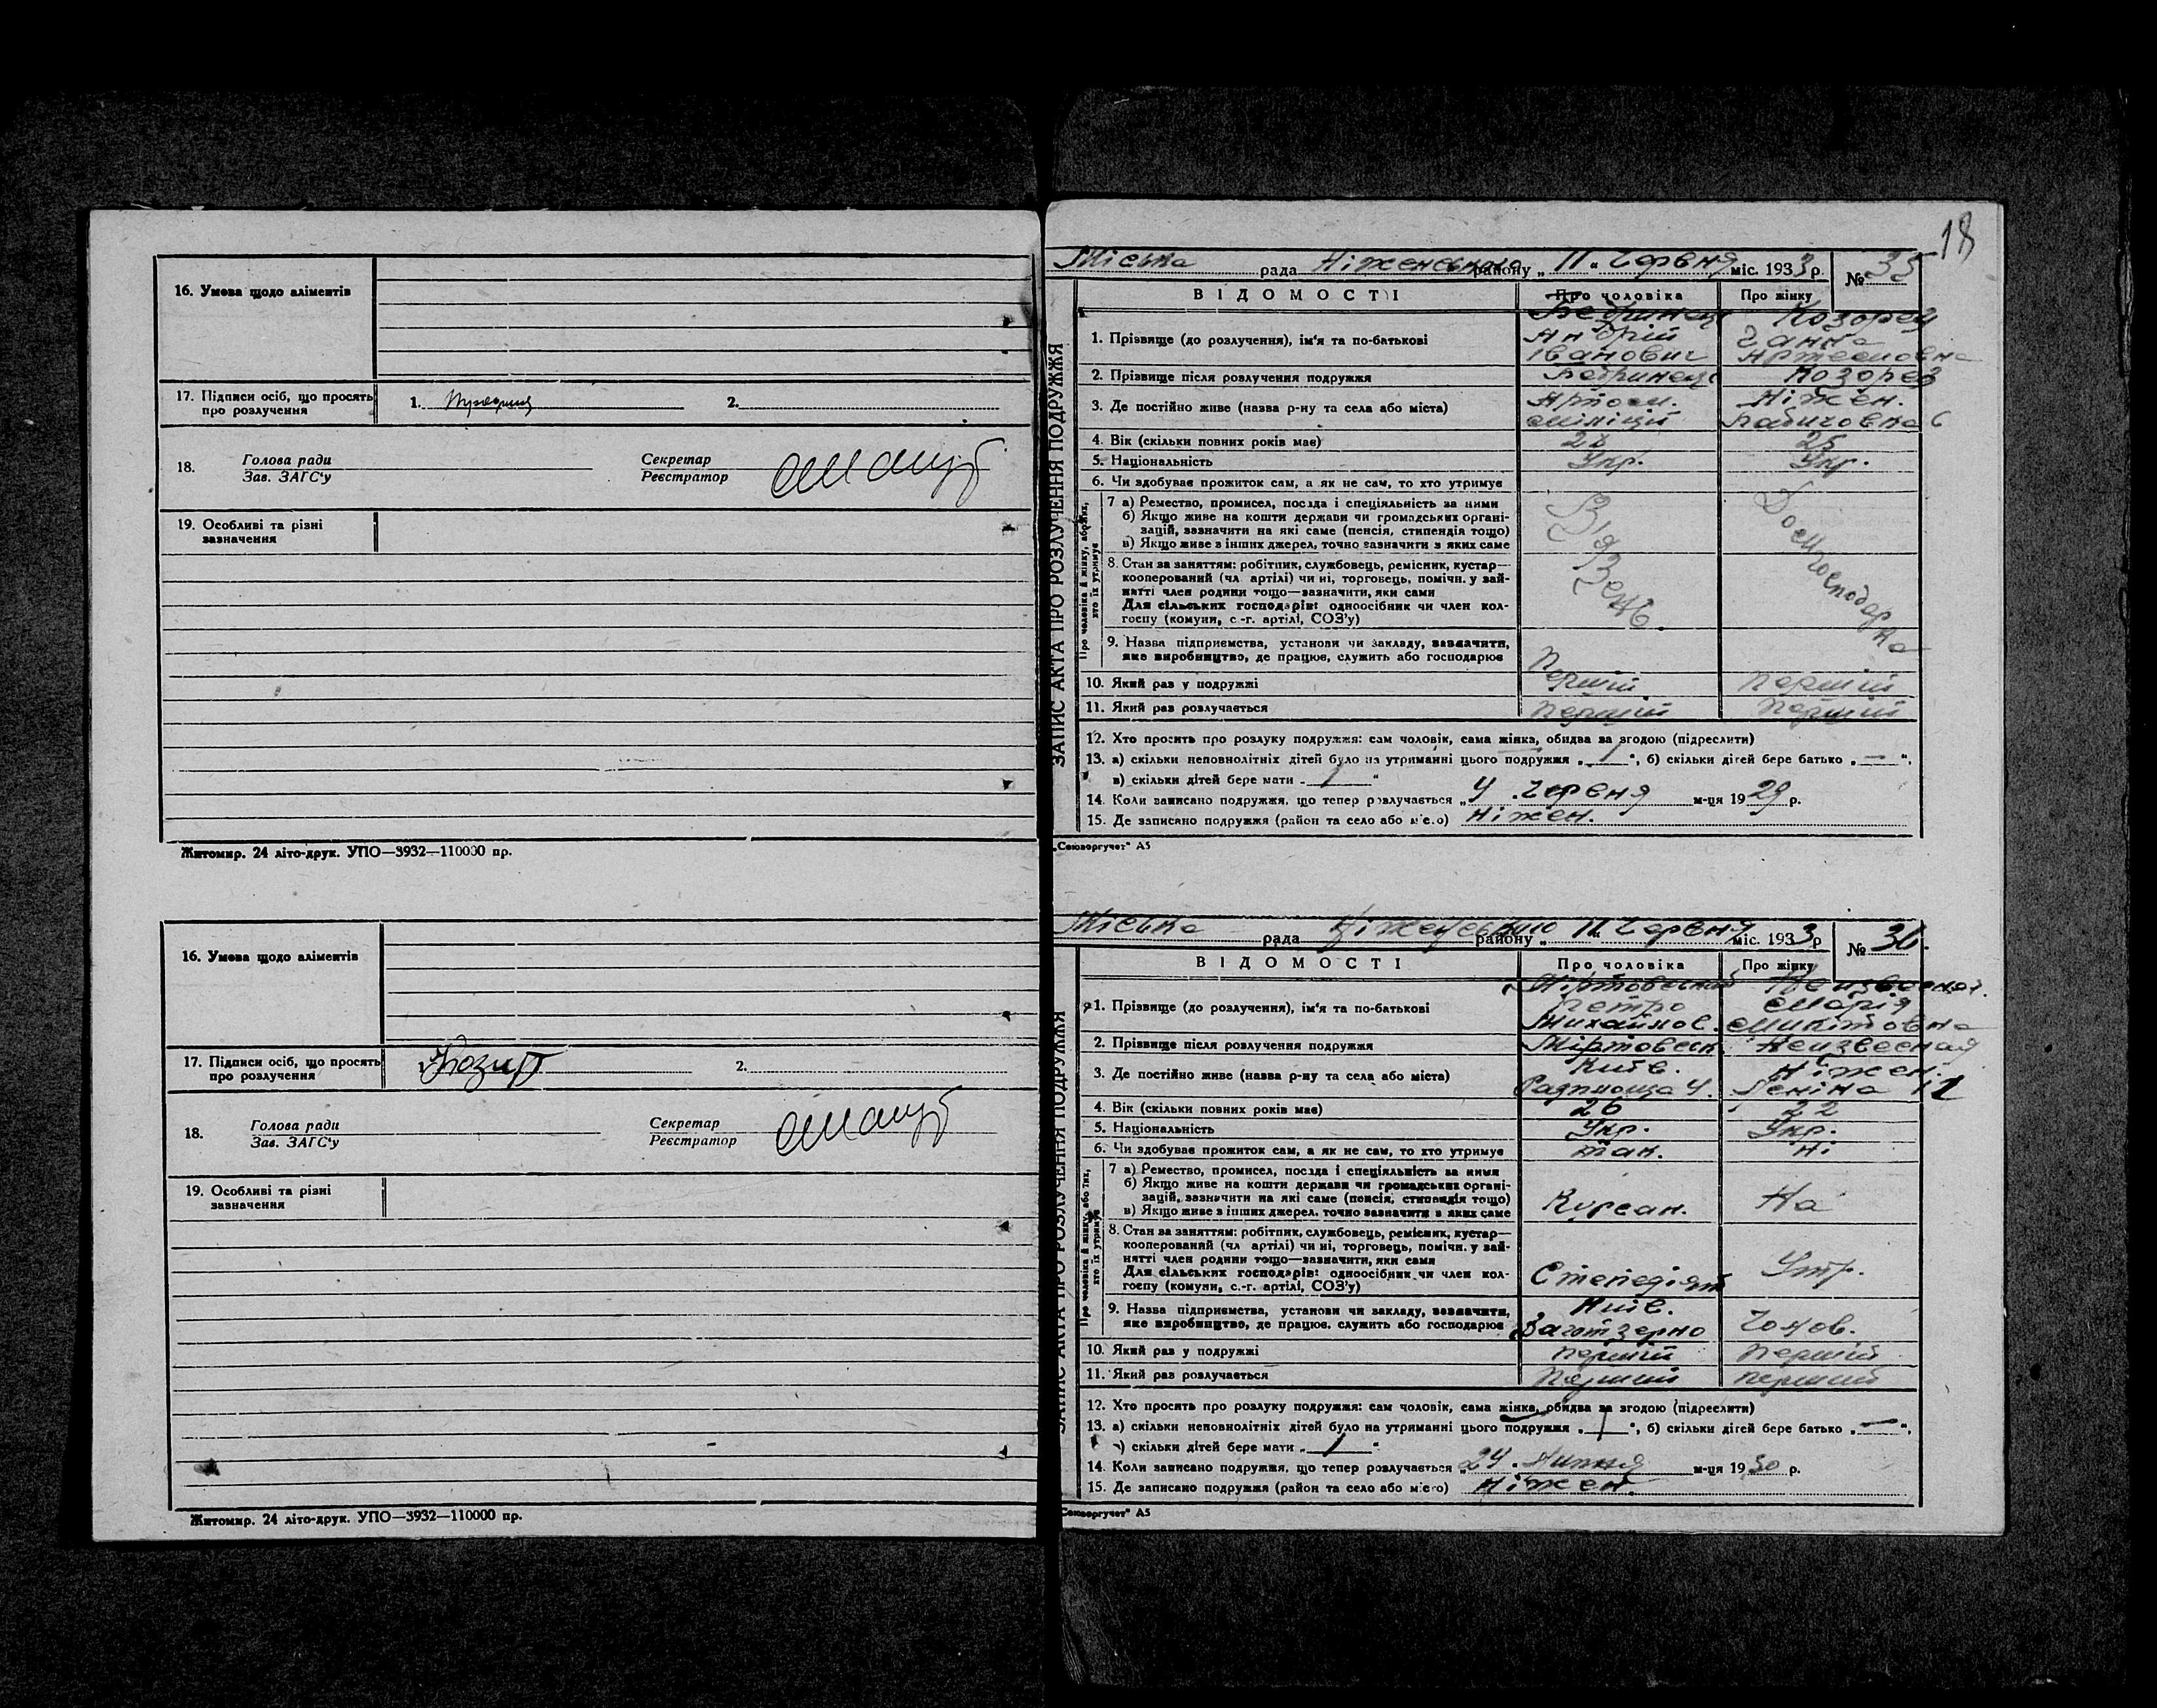 16. Умова щодо аліментів
17. Підписи осіб, що просять
про розлучення
1.
2.
18.
Голова ради
Зав. ЗАГС'у
Секретар
Реєстратор
19. Особливі та різні
зазначення
Житомир. 24 літо-друк. УПО—3932—110000 пр.
16. Умова щодо аліментів
17. Підписи осіб, що просять
про розлучення
2.
18.
Голова ради
Зав. ЗАГС'у
Секретар
Реєстратор
19. Особливі та різні
зазначення
Житомир. 24 літо-друк. УПО—3932—110000 пр.
18
Міська рада Ніженського району „11“ Червня міс. 1933 р. № 35
ЗАПИС АКТА ПРО РОЗЛУЧЕННЯ ПОДРУЖЖЯ
ВІДОМОСТІ Про чоловіка Про жінку
1. Прізвище (до розлучення), ім'я та по-батькові
Андрій Ганна
Іванович Артемовна
2. Прізвище після розлучення подружжя
3. Де постійно живе (назва р-ну та села або міста) Ніжен.
міліції
4. Вік (скільки повних років має) 25
5. Національність Укр. Укр.
6. Чи здобуває прожиток сам, а як не сам, то хто утримує
Про чоловіка й жінку, або тих,
хто їх утримує
7 а) Ремество, промисел, посада і спеціяльність за ними
б) Якщо живе на кошти держави чи громадських органі-
зацій, зазначити на які саме (пенсія, стипендія тощо)
в) Якщо живе з інших джерел, точно зазначити з яких саме
8. Стан за заняттям: робітник, службовець, ремісник, кустар—
кооперований (чл. артілі) чи ні, торговець, помічн. у зай-
нятті член родини тощо—зазначити, яки сами
Для сільських господарів: одноосібник чи член кол-
госпу (комуни, с.-г. артілі, СОЗ'у)
Вязень Домогосподарка
9. Назва підприємства, установи чи закладу, зазначити,
яке виробництво, де працює, служить або господарює
10. Який раз у подружжі Перший перший
11. Який раз розлучається перший перший
12. Хто просить про розлуку подружжя: сам чоловік, сама жінка, обидва за згодою (підреслити)
13. а) скільки неповнолітніх дітей було на утриманні цього подружжя „ 1 “, б) скільки дітей бере батько „ — “,
в) скільки дітей бере мати „ 1 “
14. Коли записано подружжя, що тепер розлучається „ 4 . червня м-ця 1929 р.
15. Де записано подружжя (район та село або місто) Ніжен.
„Союзоргучет“ А5
Міська рада Ніженського району „11“ Червня міс. 1933 р № 36.
ЗАПИС АКТА ПРО РОЗЛУЧЕННЯ ПОДРУЖЖЯ
ВІДОМОСТІ Про чоловіка Про жінку
1. Прізвище (до розлучення), ім'я та по-батькові
Петро Марія
Михайлов. Микитовна
2. Прізвище після розлучення подружжя Неизвесная
3. Де постійно живе (назва р-ну та села або міста) Київ. Ніжен.
Леніна
4. Вік (скільки повних років має) 26 22
5. Національність Укр. Укр.
6. Чи здобуває прожиток сам, а як не сам, то хто утримує так. Ні
Про чоловіка й жінку, або тих,
хто їх утримує
7 а) Ремество, промисел, посада і спеціяльність за ними
б) Якщо живе на кошти держави чи громадських органі-
зацій, зазначити на які саме (пенсія, стипендія тощо)
в) Якщо живе з інших джерел, точно зазначити з яких саме
Курсан. На
8. Стан за заняттям: робітник, службовець, ремісник, кустар—
кооперований (чл артілі) чи ні, торговець, помічн. у зай-
нятті член родини тощо—зазначити, яки сами
Для сільських господарів: одноосібник чи член кол-
госпу (комуни, с.-г. артілі, СОЗ'у)
Степедіят Утр.
9. Назва підприємства, установи чи закладу, зазначити,
яке виробництво, де працює, служить або господарює
Київ.
Заготзерно Чолов.
10. Який раз у подружжі перший перший
11. Який раз розлучається Перший перший
12. Хто просить про розлуку подружжя: сам чоловік, сама жінка, обидва за згодою (підреслити)
13. а) скільки неповнолітніх дітей було на утриманні цього подружжя „ 1 “, б) скільки дітей бере батько „ — “,
в) скільки дітей бере мати „ 1 “
14. Коли записано подружжя, що тепер розлучається „ 24 . Липня м-ця 1930 р.
15. Де записано подружжя (район та село або місто) Ніжен.
„Союзоргучет“ А5